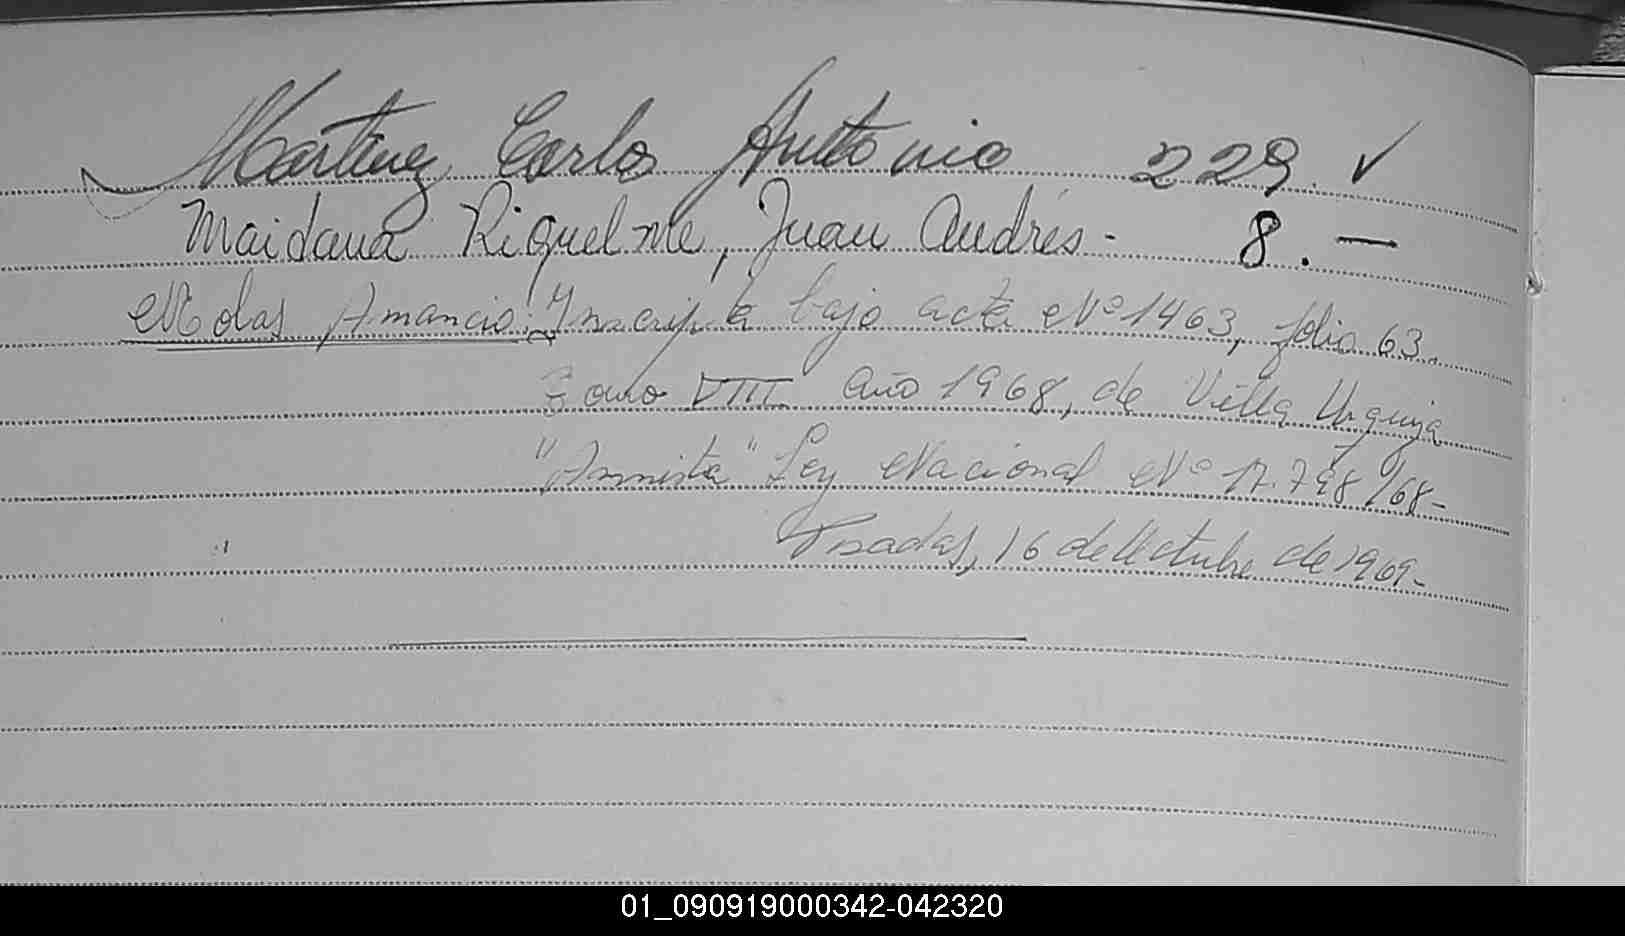 Martinez Carlos Antonio 229. ✓
Maidana Riquelme, Juan Andrés - 8. —
Molas Amancio: Inscripta bajo acta Nº 1463, folio 63.
Tomo VIII año 1968, de Villa Urquiza
"Amnistia" Ley Nacional Nº 17.798/68-
Posadas, 16 de Octubre de 1969-
01_090919000342-042320